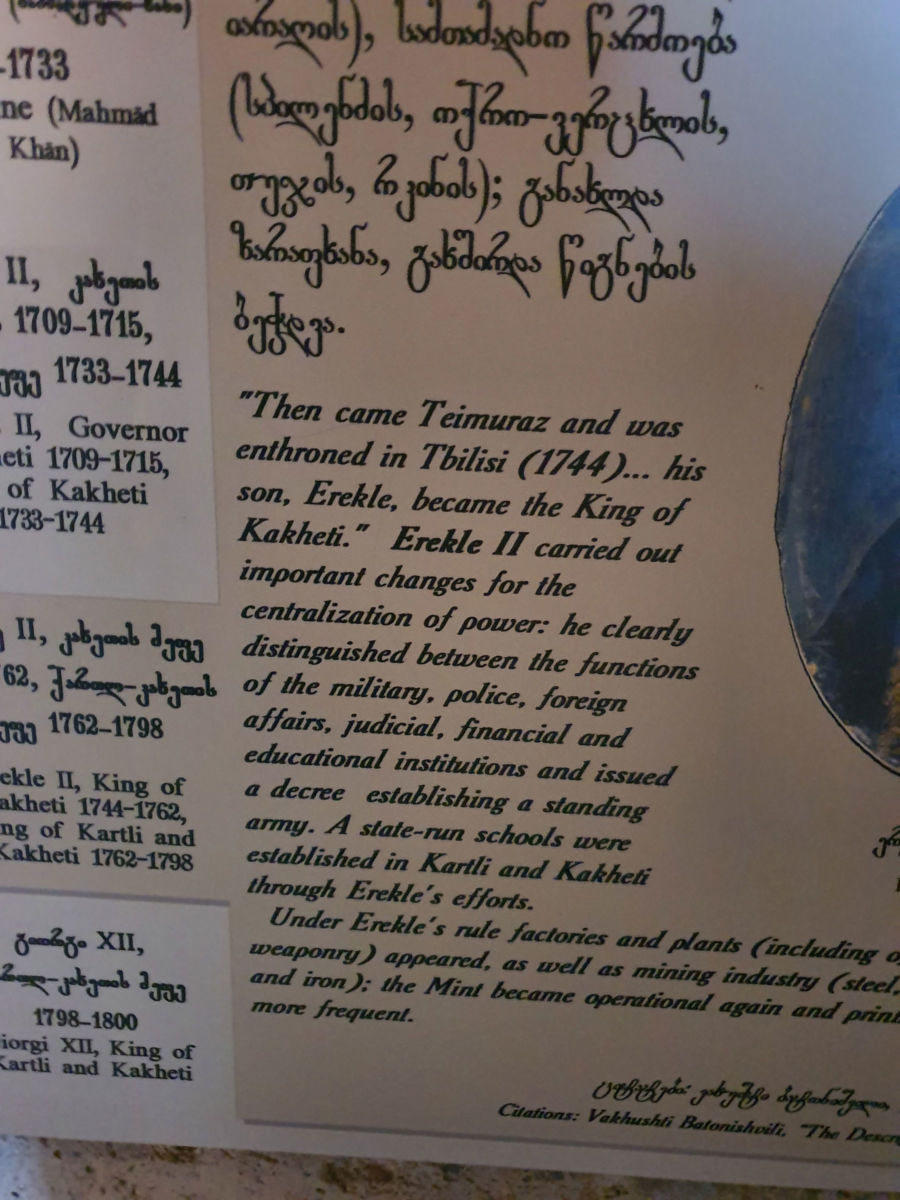 -1733
ne (Mahmād
Khān)
II, კახეთის
1709–1715,
1733–1744
II, Governor
eti 1709–1715,
of Kakheti
1733–1744
II, კახეთის მეფე
62, ქართლ-კახეთის
1762–1798
ekle II, King of
akheti 1744–1762,
ng of Kartli and
Kakheti 1762–1798
გიორგი XII,
რთლ-კახეთის მეფე
1798–1800
iorgi XII, King of
Kartli and Kakheti
იარაღის), სამთამადნო წარმოება
(სპილენძის, ოქრო-ვერცხლის,
თუჯის, რკინის); განახლდა
ზარაფხანა, გახშირდა წიგნების
ბეჭდვა.
"Then came Teimuraz and was
enthroned in Tbilisi (1744)... his
son, Erekle, became the King of
Kakheti." Erekle II carried out
important changes for the
centralization of power: he clearly
distinguished between the functions
of the military, police, foreign
affairs, judicial, financial and
educational institutions and issued
a decree establishing a standing
army. A state-run schools were
established in Kartli and Kakheti
through Erekle's efforts.
Under Erekle's rule factories and plants (including o
weaponry) appeared, as well as mining industry (steel,
and iron); the Mint became operational again and print
more frequent.
ციტირება: ვახუშტი ბატონიშვილი,
Citations: Vakhushti Batonishvili, "The Descr